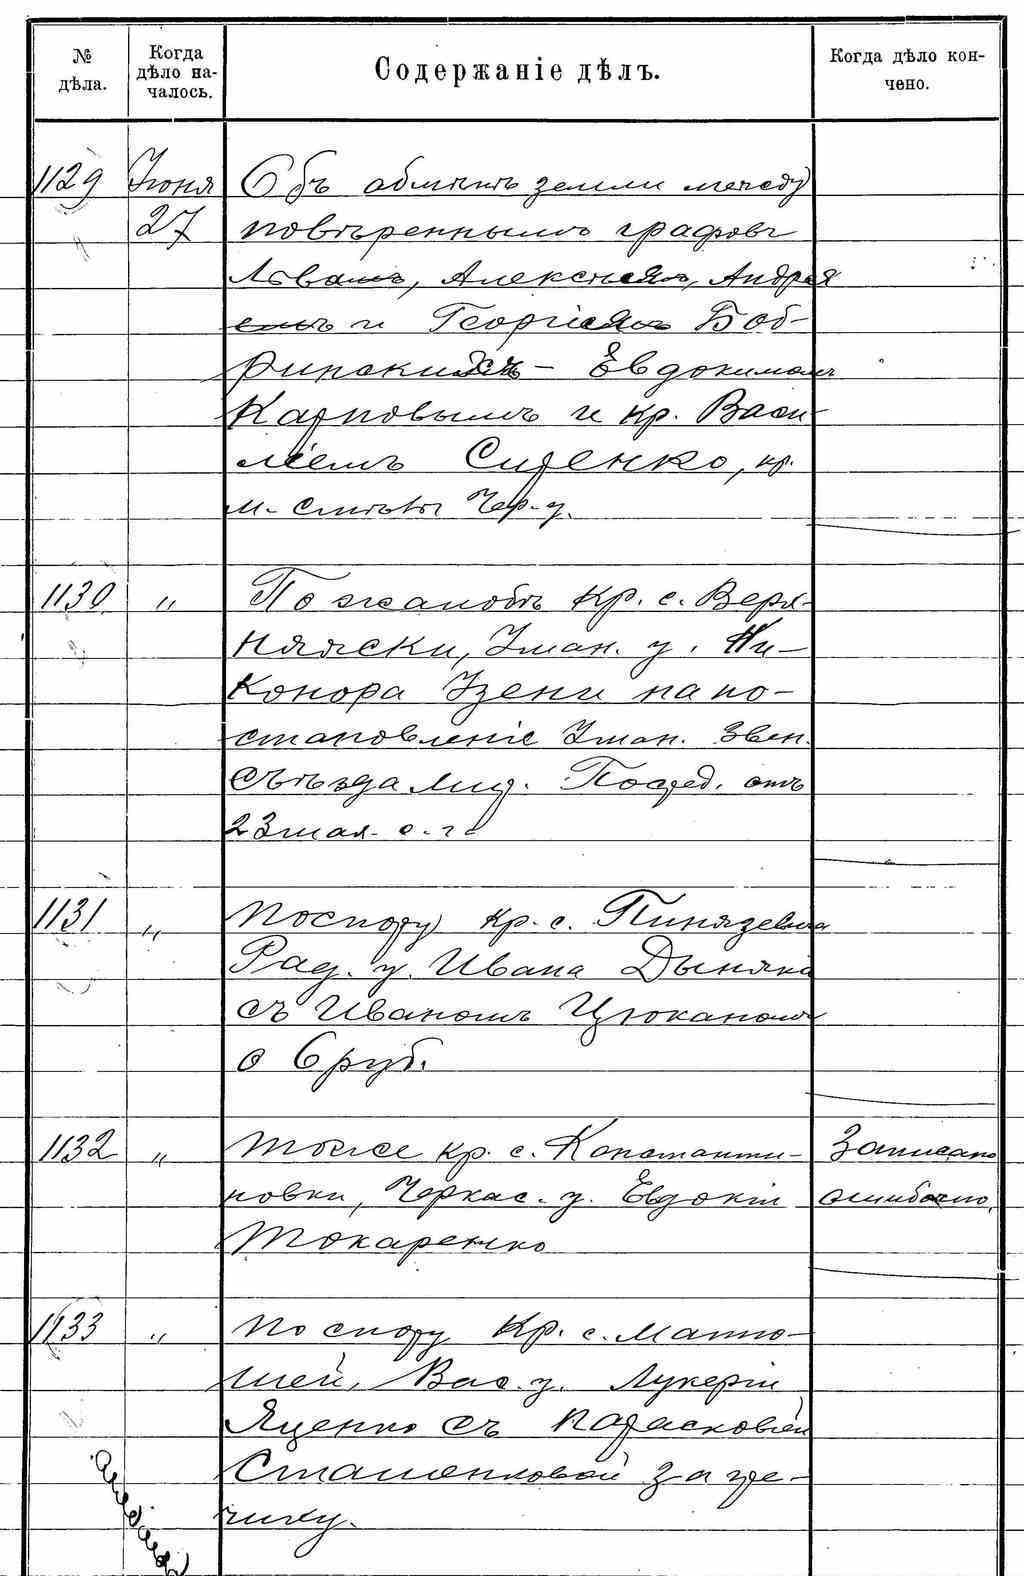 № дѣла.
Когда дѣло на- чалось.
Содержаніе дѣлъ.
Когда дѣло кон- чено.
1129 Іюня Объ обмѣнѣ земли между
27 повѣреннымъ графовъ
Львомъ, Алексѣемъ, Андрея
емъ и Георгіемъ Боб-
ринскихъ – Евдокимомъ
Карповымъ и кр. Васи-
ліемъ Сиренко, кр.
м. Смѣлы Чер. у.
1130 „ По жалобѣ кр. с. Верх-
нячски, Уман. у. Ни-
конора Узени на по-
становленіе Уман. Звен.
съѣзда Мир. Посред. отъ
23 мая с. г.
1131 „ По спору кр. с. Пинязевича
Рад. у. Ивана Дыняка
съ Иваномъ Цюканомъ
о 6 руб.
1132 „ Тоже кр. с. Константи- Записано
новки, Черкас. у. Евдокіи ошибочно.
Токаренко
1133 „ По спору кр. с. Мото-
шей, Вас. у. Лукеріи
Яценко съ Парасковіей
Сташенковой за гре-
чиху.